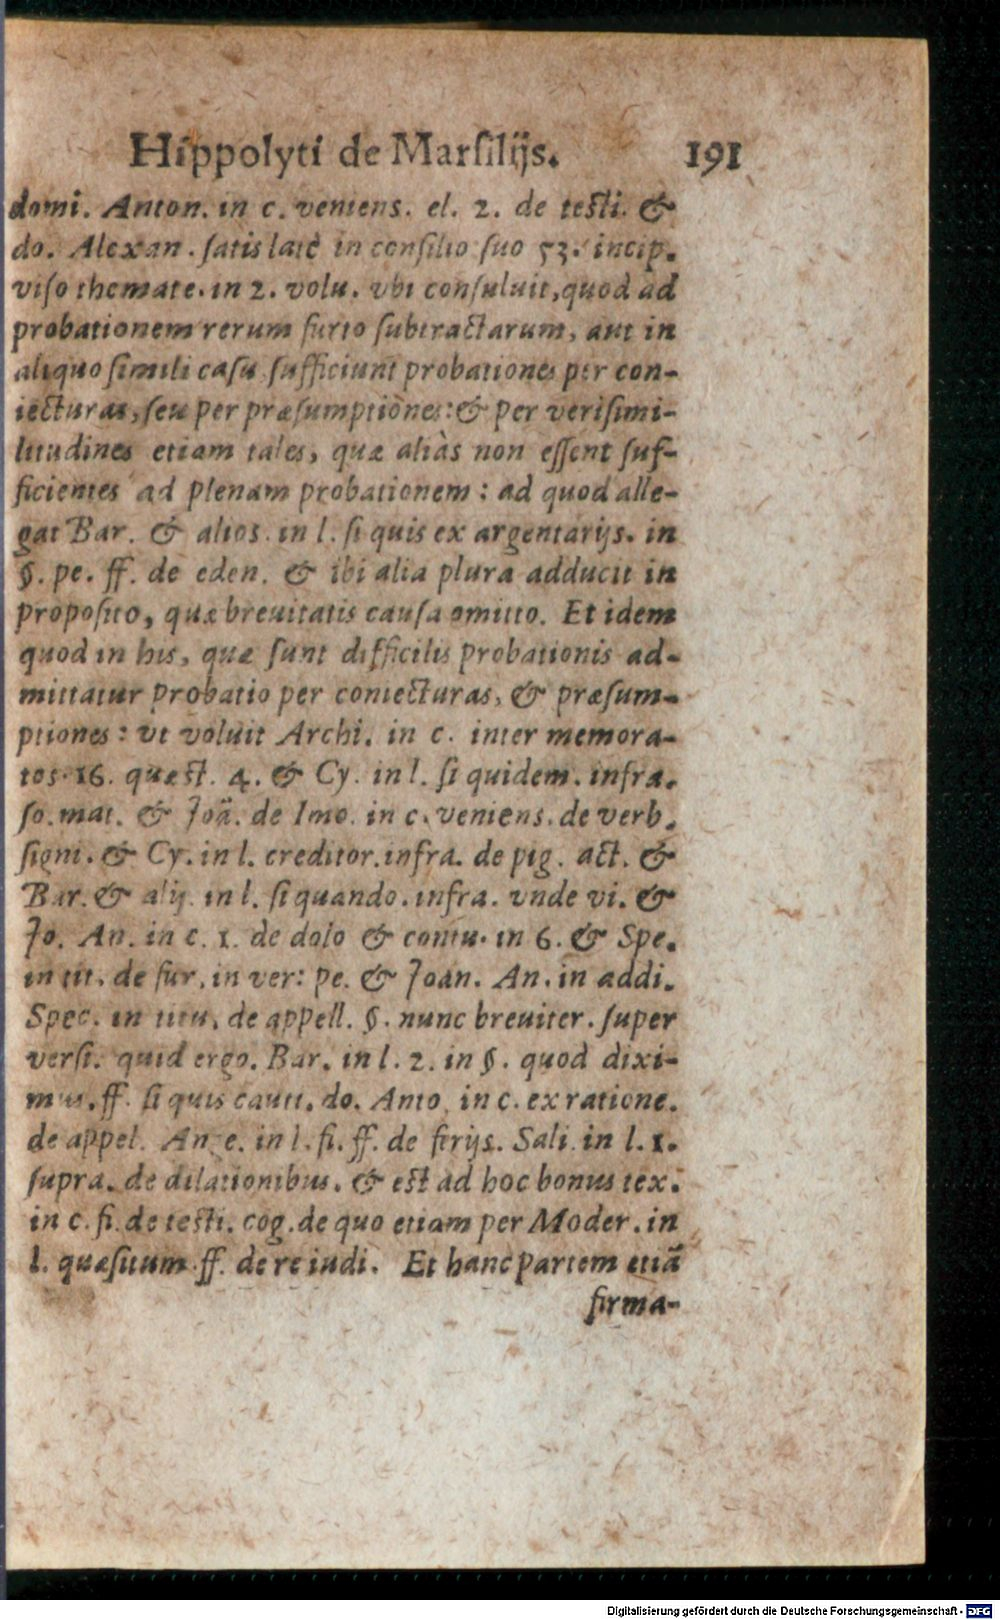 Hippolyti de Marsilijs. 191
domi. Anton. in c. veniens. el. 2. de testi. &
do. Alexan. satis latè in consilio suo 53. incip.
viso themate. in 2. volu. vbi consuluit, quod ad
probationem rerum furto subtractarum, aut in
aliquo simili casu sufficiunt probationes per con-
iecturas, seu per præsumptiones: & per verisimi-
litudines etiam tales, quæ aliàs non essent suf-
ficientes ad plenam probationem: ad quod alle-
gat Bar. & alios. in l. si quis ex argentarijs. in
§. pe. ff. de eden. & ibi alia plura adducit in
proposito, quæ breuitatis causa omitto. Et idem
quod in his, quæ sunt difficilis probationis ad-
mittatur probatio per coniecturas, & præsum-
ptiones: vt voluit Archi. in c. inter memora-
tos. 16. quæst. 4. & Cy. in l. si quidem. infra.
so. mat. & Joã. de Imo. in c. veniens. de verb.
signi. & Cy. in l. creditor. infra. de pig. act. &
Bar. & alij. in l. si quando. infra. vnde vi. &
Jo. An. in c. 1. de dolo & contu. in 6. & Spe.
in tit. de fur. in ver: pe. & Joan. An. in addi.
Spec. in titu. de appell. §. nunc breuiter. super
versi. quid ergo. Bar. in l. 2. in §. quod dixi-
mus. ff. si quis cauti. do. Anto. in c. ex ratione.
de appel. Ange. in l. fi. ff. de ferijs. Sali. in l. 1.
supra. de dilationibus. & est ad hoc bonus tex.
in c. fi. de testi. cog. de quo etiam per Moder. in
l. quæsitum. ff. de re iudi. Et hanc partem etiã
firma-
Digitalisierung gefördert durch die Deutsche Forschungsgemeinschaft - DFG